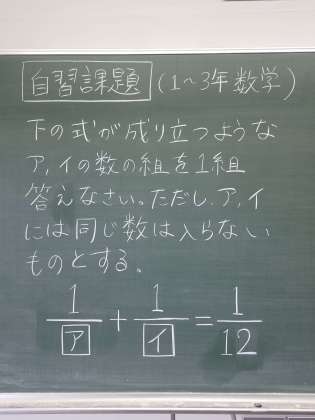 自習課題(1~3年数学)
下の式が成り立つような
ア,イの数の組を1組
答えなさい。ただし、ア,イ
には同じ数は入らない
ものとする。
1/ア + 1/イ = 1/12